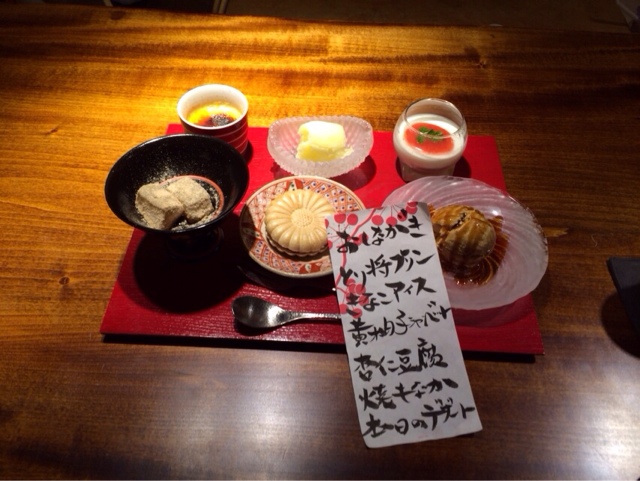 おはぎ
とり将プリン
きなこアイス
黄柚子シャーベット
杏仁豆腐
焼もなか
本日のデザート